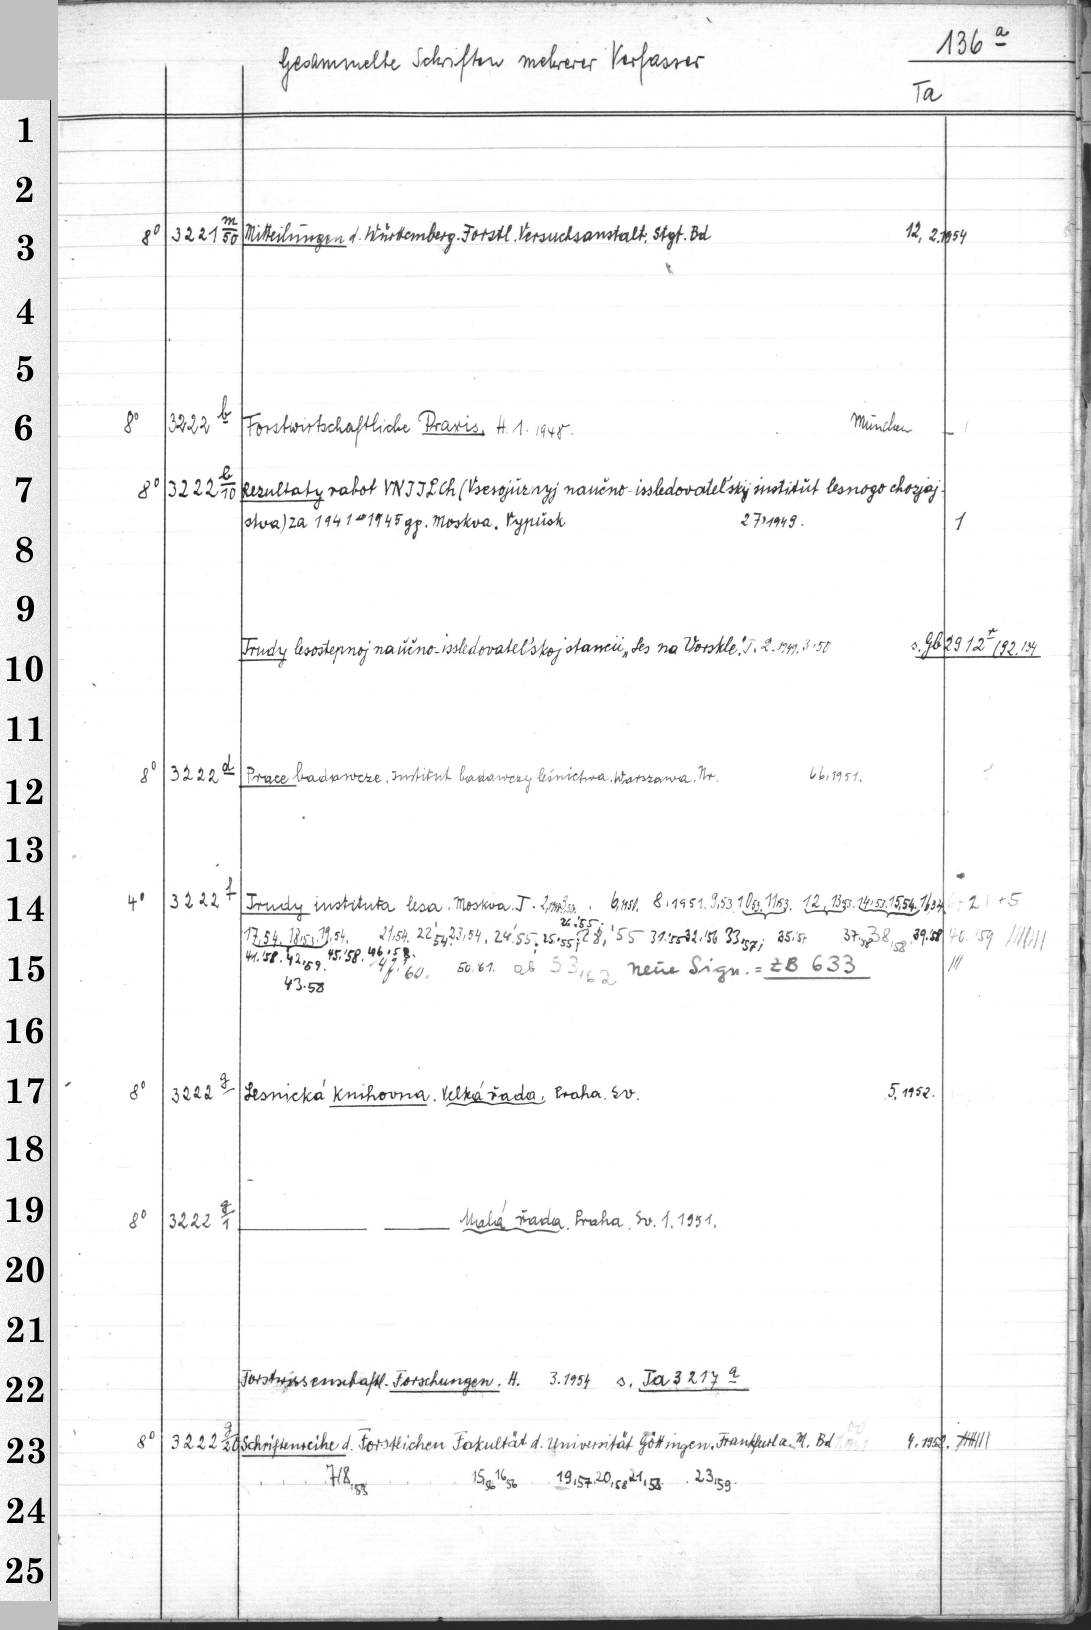 136 a
Gesammelte Schriften mehrerer Verfasser
Ta
1
2
3 8° 3221 m/50 Mitteilungen d. Württemberg. Forstl. Versuchsanstalt, Stgt. Bd 12, 2.1954
4
5
6 8° 3222 b Forstwirtschaftliche Praxis. H. 1. 1948. München
7 8° 3222 b/10 Rezultaty rabot VNIILCh (Vsesojuznyj naučno-issledovatel'skij institut lesnogo chozjaj-
stva) za 1941-1945 gg. Moskva. Vypusk 27,1949. 1
8
9
10 Trudy lesostepnoj naučno-issledovatel'skoj stancii „Les na Vorskle." T. 2. 1949. 3.50 s. Gb 2912 r (92.134
11
12 8° 3222 d Prace badawcze. Institut badawczy leśnictwa. Warszawa. Nr. 66,1951.
13
14 4° 3222 f Trudy instituta lesa. Moskva. T. 6,1950. 8,1951. 9,53. 10,53. 11,53. 12, 13,53. 14,53. 15,54. 16,54 + 2 + 5
26,'55.
17,54. 18,53. 19,54. 21,54. 22,'54 23,54. 24,'55. 25,'55; 28,'55 31.'55 32.'56 33,'57; 35,57 37,58 38,58 39.'58 40.'59
15 41.'58. 42,'59. 45.'58. 46,'58. 47,'60. 50.'61. ab 53,62 neue Sign. = ZB 633
43.58
16
17 8° 3222 g Lesnická knihovna. Velká řada. Praha. Sv. 5,1952.
18
19 8° 3222 g/1 Malá řada. Praha. Sv. 1. 1951.
20
21
22 Forstwissenschaftl. Forschungen. H. 3.1954 s. Ta 3217 a
23 8° 3222 g/20 Schriftenreihe d. Forstlichen Fakultät d. Universität Göttingen. Frankfurt a. M. Bd 4.1952.
7/8,53 15,56 16,56 19,57. 20,58 21,58 23,59.
24
25